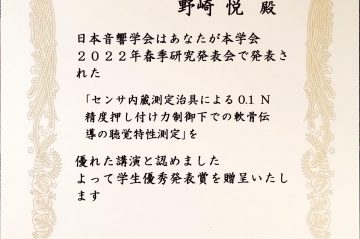 野崎 悦 殿
日本音響学会はあなたが本学会
２０２２年春季研究発表会で発表さ
れた
「センサ内蔵測定治具による 0.1 N
精度押し付け力制御下での軟骨伝
導の聴覚特性測定」を
優れた講演と認めました
よって学生優秀発表賞を贈呈いたし
ます